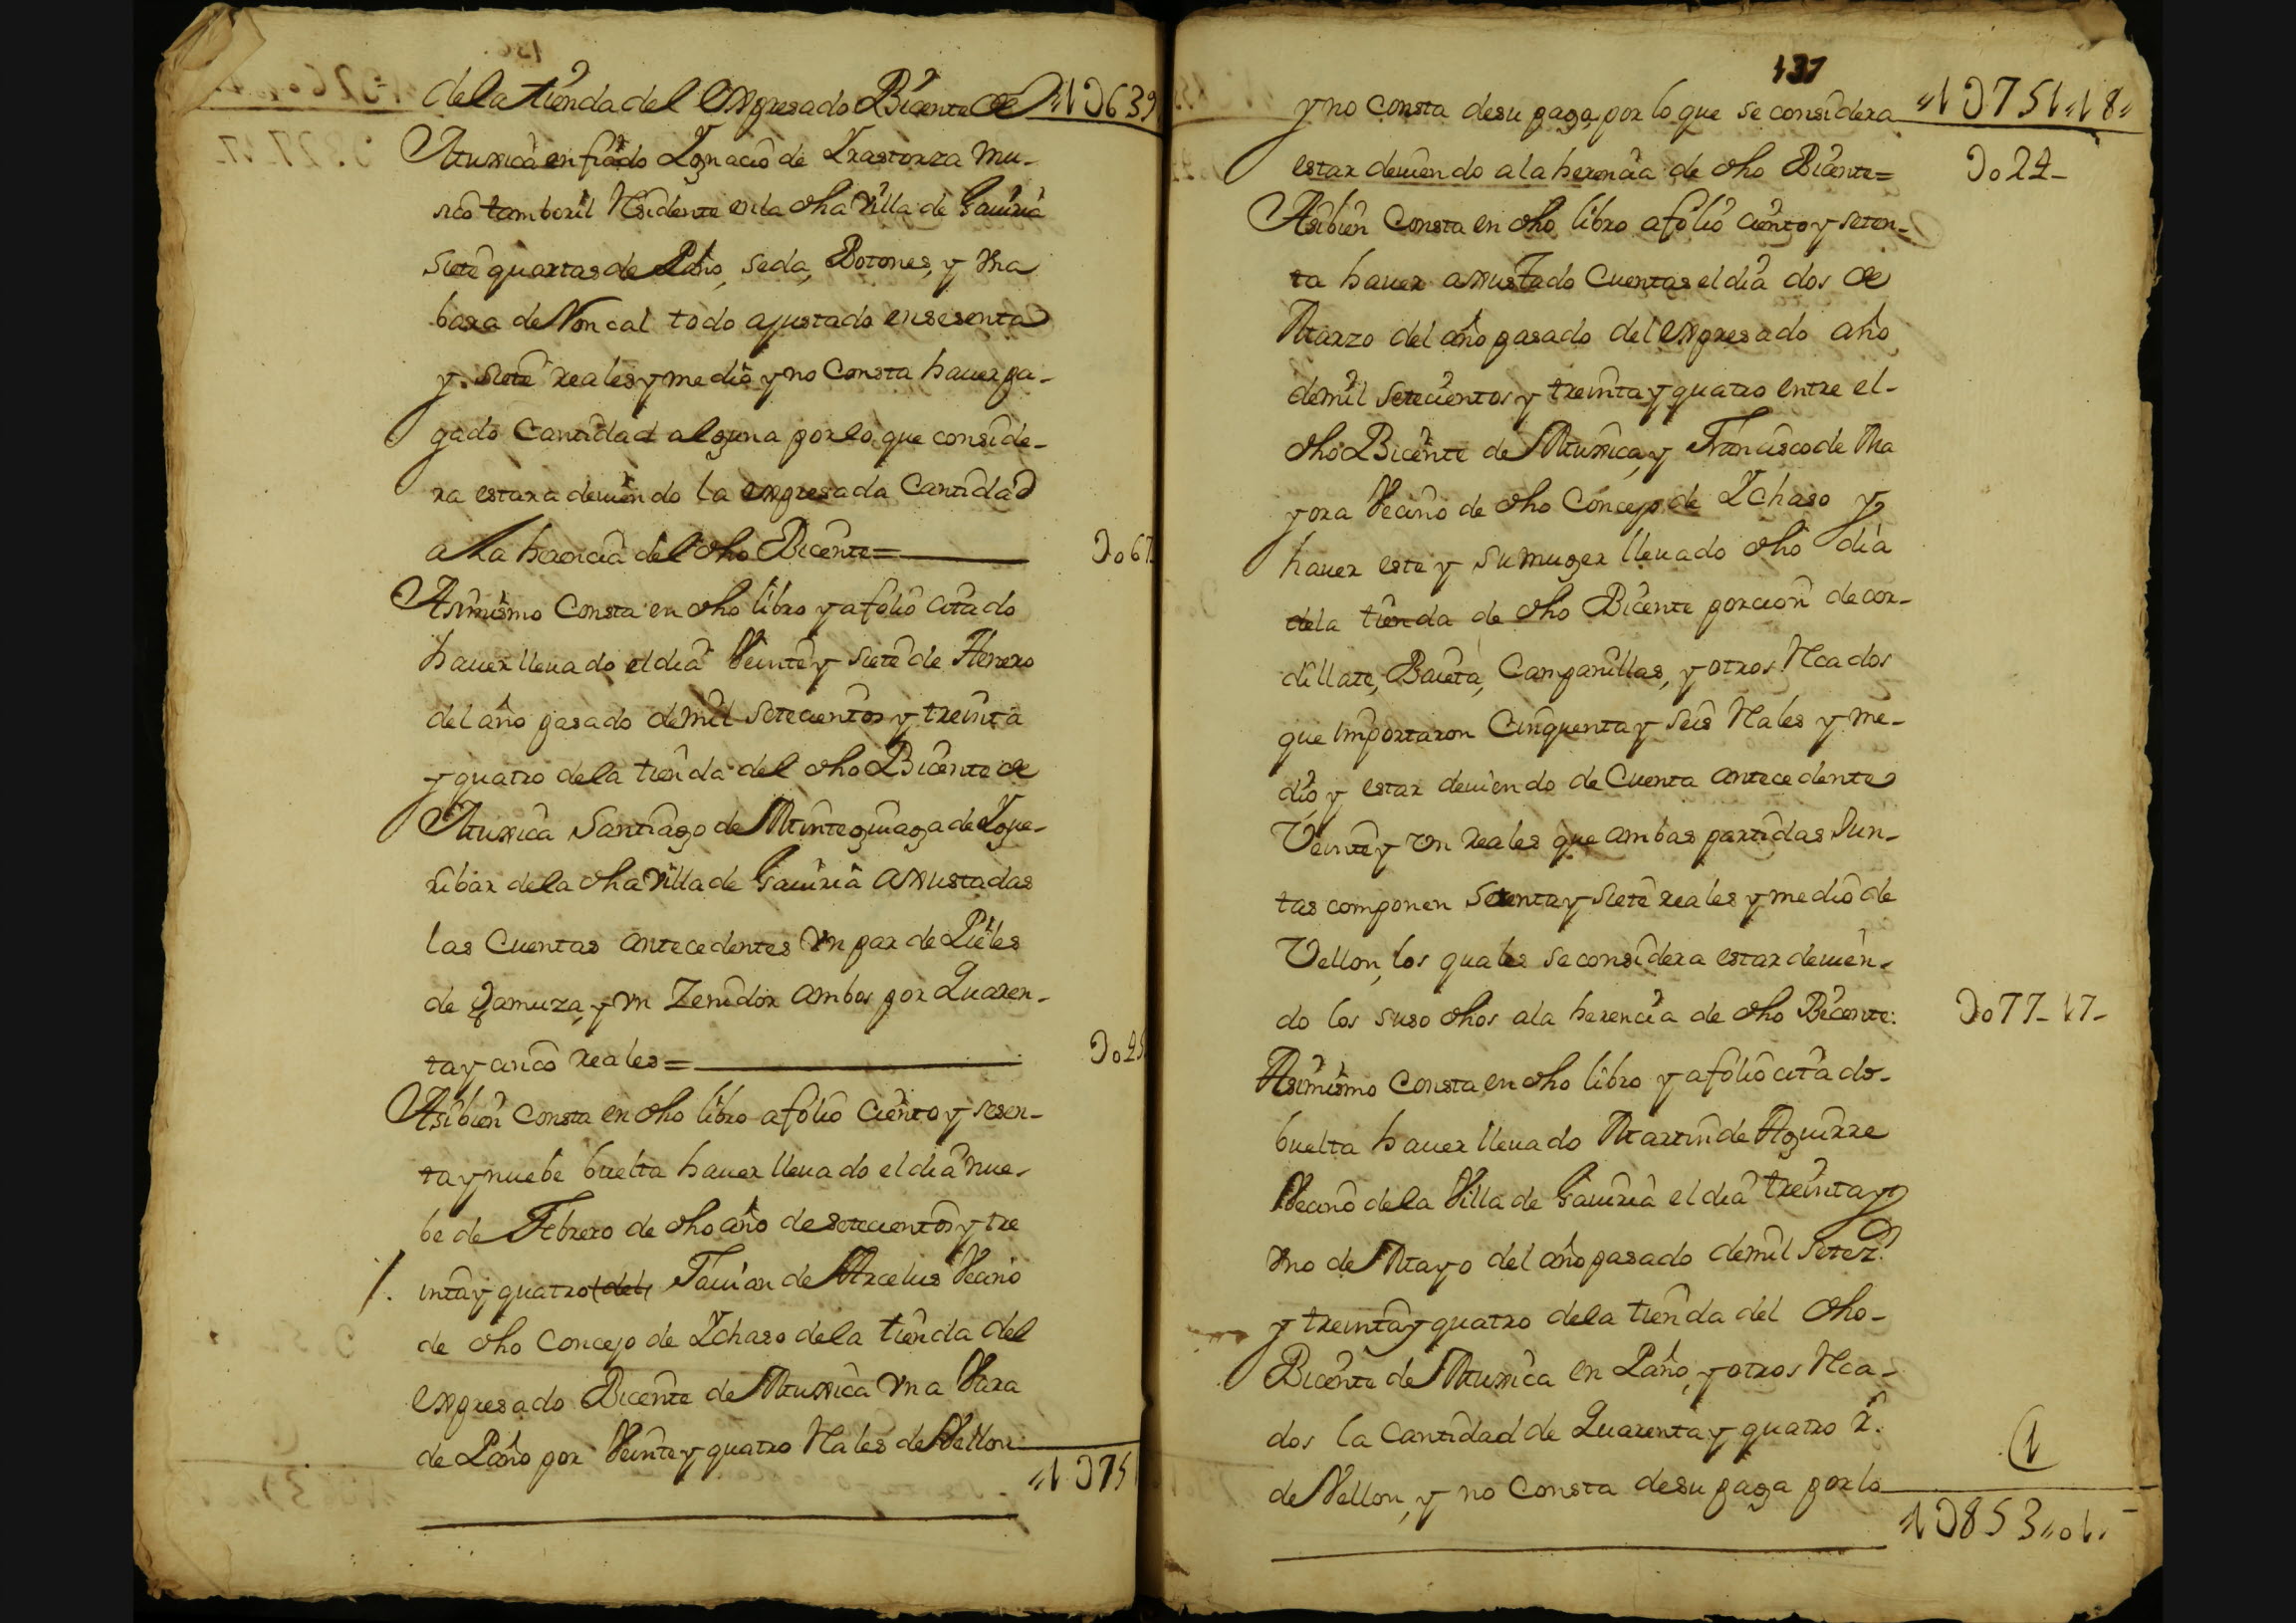 de la tienda del expresado Bicente de "1U639
Muxica en fiado Ygnacio de Yrastorza mu-
sico tamboril Residente en la dha Villa de Gaviria
siete quartas de Paño, seda, Botones, y Vna
bara de Noncal todo ajustado en sesenta
y siete reales y medio y no Consta haver pa-
gado Cantidad alguna por lo que conside-
ra estara deviendo la expresada Cantidad
a la herencia del dho Bicente= U067
Asimismo Consta en dho libro y a folio citado
haver llevado el dia Veinte y siete de Henero
del año pasado de mil setecientos y treinta
y quatro de la tienda del dho Bicente de
Muxica Santiago de Minteguiaga de Ygue-
ribar de la dha Villa de Gaviria axustadas
las Cuentas antecedentes Vn par de Pieles
de Gamuza, y Vn Zenidor ambos por Quaren-
ta y cinco reales= U045
Asibien Consta en dho libro a folio Ciento y sesen-
ta y nuebe buelta haver llevado el dia nue-
be de Febrero de dho año de setecientos y tre
/. inta y quatro (del) Favian de Arcelus Vecino
de dho Concejo de Ychaso de la tienda del
expresado Bicente de Muxica Vna Vara
de Paño por Veinte y quatro Rales de Vellon
"1U751
137
y no Consta de su paga, por lo que se considera "1U751"18"
estar deviendo a la herencia de dho Bicente= U024-
Asibien Consta en dho libro a folio ciento y seten-
ta haver axustado Cuentas el dia dos de
Marzo del año pasado del expresado año
de mil setecientos y treinta y quatro entre el-
dho Bicente de Muxica, y Francisco de Ma
yora Vecino de dho Concejo de Ychaso y
haver este y su muger llevado dho dia
de la tienda de dho Bicente porcion de cor-
dillate, Baieta, Campanillas, y otros Rcados
que importaron Cinquenta y seis Rales y me-
dio, y estar deviendo de Cuenta antecedente
Veinte y Vn reales que ambas partidas Jun-
tas componen setenta y siete reales y medio de
Vellon, los quales se considera estar devien-
do los suso dhos a la herencia de dho Bicente: U077-17-
Asimismo Consta en dho libro y a folio citado-
buelta haver llevado Martin de Aguirre
Vecino de la Villa de Gaviria el dia treinta y
Vno de Mayo del año pasado de mil setez.
y treinta y quatro de la tienda del dho-
Bicente de Muxica en Paño, y otros Rca-
dos la Cantidad de Quarenta y quatro r.
de Vellon, y no Consta de su paga por lo
1U853"01"